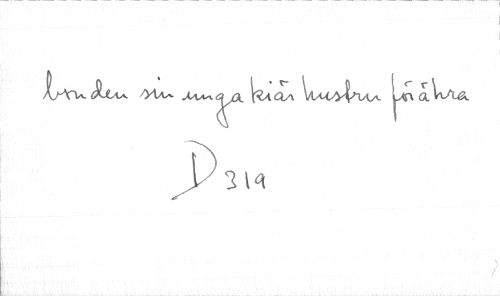 bonden sin unga kiär hustru förähra
D 319